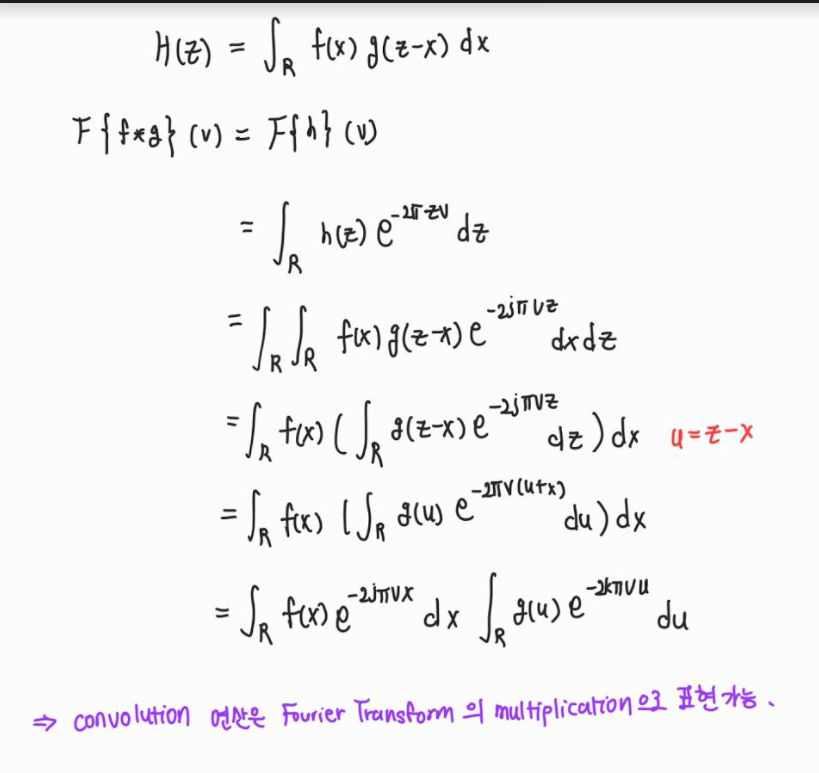 H(z) = ∫_R f(x) g(z-x) dx
F{f*g} (v) = F{h} (v)
= ∫_R h(z) e^{-2π zv} dz
= ∫_R ∫_R f(x) g(z-x) e^{-2jπ vz} dx dz
= ∫_R f(x) ( ∫_R g(z-x) e^{-2jπvz} dz ) dx u=z-x
= ∫_R f(x) ( ∫_R g(u) e^{-2πv(u+x)} du ) dx
= ∫_R f(x) e^{-2jπvx} dx ∫_R g(u) e^{-2kπvu} du
⇒ convolution 연산은 Fourier Transform 의 multiplication으로 표현가능.